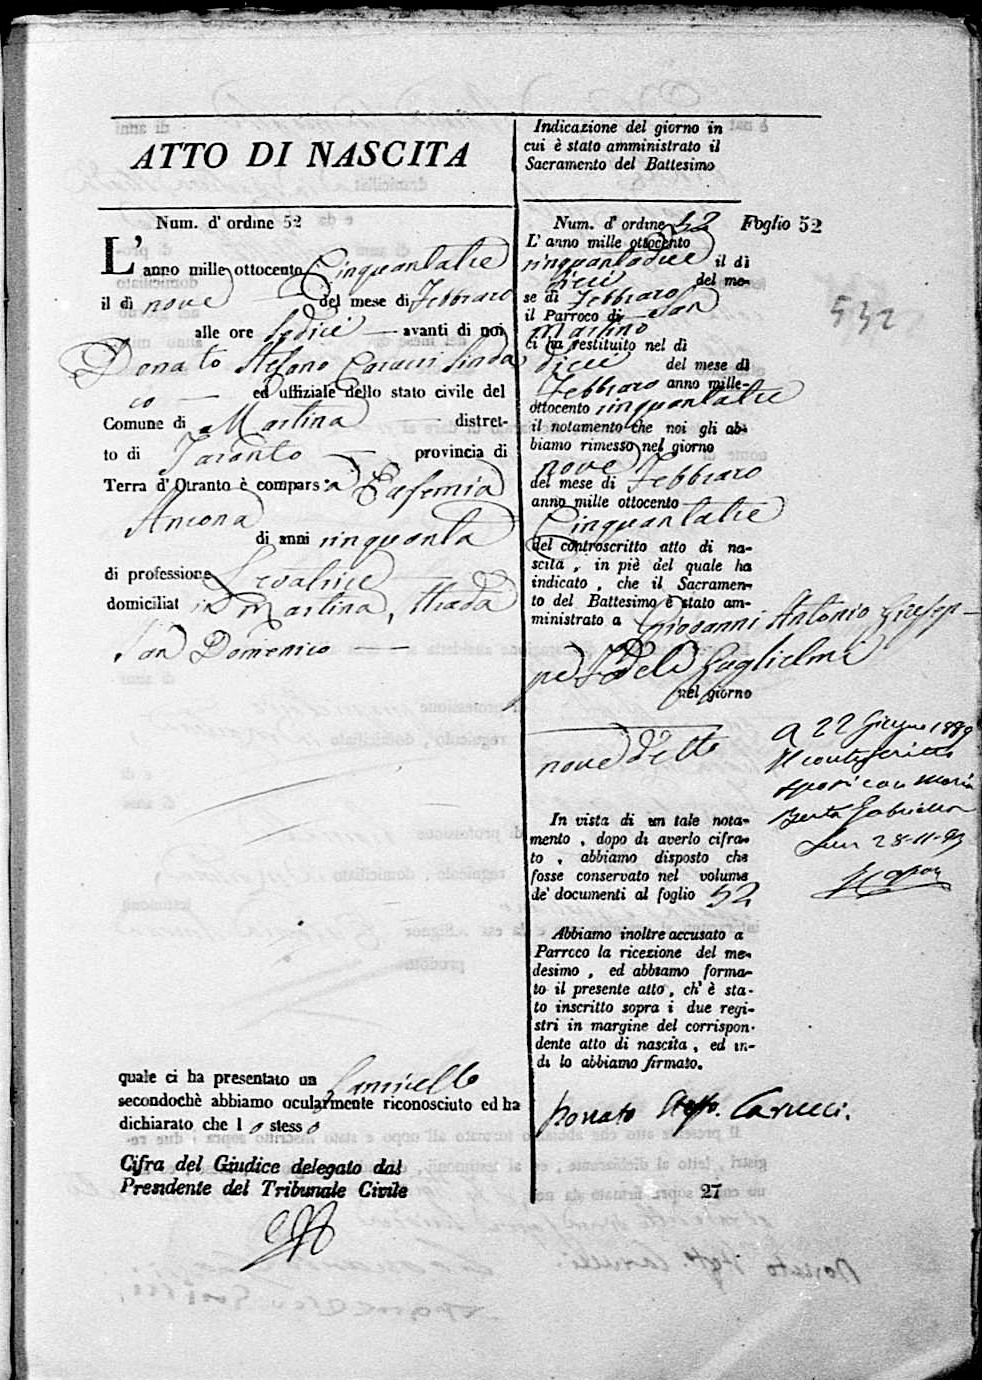 ATTO DI NASCITA
Num. d' ordine 52
L' anno mille ottocento Cinquantatre
il dì nove del mese di Febbraro
alle ore sedici avanti di noi
Donato Stefano Carucci Sinda
co ed uffiziale dello stato civile del
Comune di Martina distret-
to di Taranto provincia di
Terra d' Otranto è comparsa Eufemia
Ancona
di anni cinquanta
di professione Levatrice
domiciliat in Martina, strada
San Domenico
quale ci ha presentato un
secondochè abbiamo ocularmente riconosciuto ed ha
dichiarato che l o stesso
Cifra del Giudice delegato dal
Presidente del Tribunale Civile
Indicazione del giorno in
cui è stato amministrato il
Sacramento del Battesimo
Num. d' ordine 52 Foglio 52
L' anno mille ottocento
cinquantatre il dì
dieci del me-
se di Febbraro
il Parroco di San
Martino
ci ha restituito nel dì
dieci del mese di
Febbraro anno mille-
ottocento cinquantatre
il notamento che noi gli ab-
biamo rimesso nel giorno
nove Febbraro
del mese di
anno mille ottocento
Cinquantatre
del controscritto atto di na-
scita, in piè del quale ha
indicato, che il Sacramen-
to del Battesimo è stato am-
ministrato a Giovanni Antonio Giusep-
pe Fedele Guglielmi
nel giorno
nove detto
In vista di un tale nota-
mento, dopo di averlo cifra-
to, abbiamo disposto che
fosse conservato nel volume
de' documenti al foglio 52
Abbiamo inoltre accusato a
Parroco la ricezione del me-
desimo, ed abbiamo forma-
to il presente atto, ch' è sta-
to inscritto sopra i due regi-
stri in margine del corrispon-
dente atto di nascita, ed in-
di lo abbiamo firmato.
Donato Stef. Carucci.
27
532
A 22 Giugno 1889
Il controscritto
sposò con Maria
28-11-93